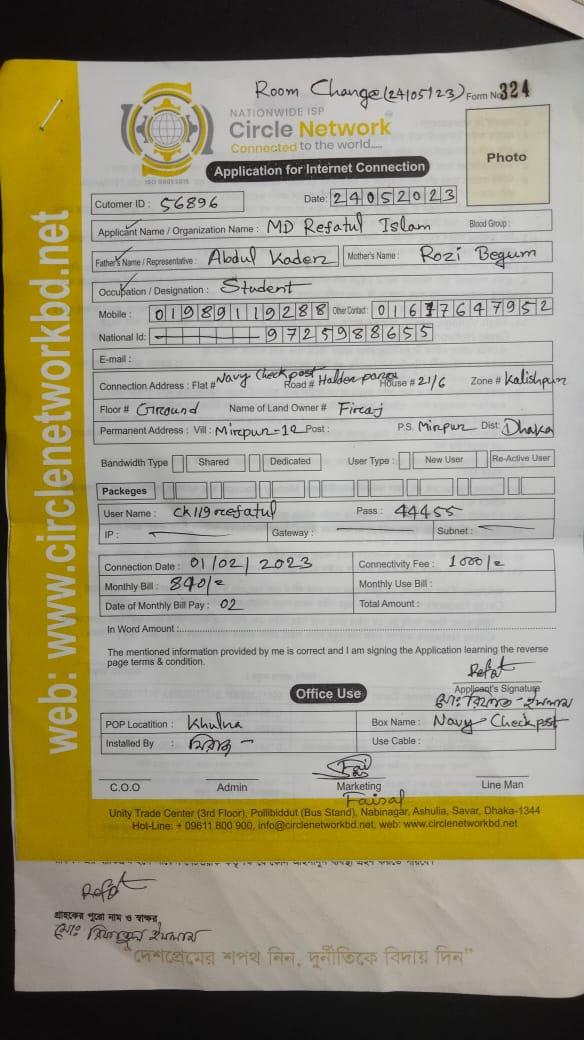 Room Change (24/05/23) Form No 324
NATIONWIDE ISP
Circle Network
Connected to the world.....
ISO 9001:2015
Photo
Application for Internet Connection
Cutomer ID : 56896 Date: 24052023
Applicant Name / Organization Name : MD Refatul Islam Blood Group :
Father's Name / Representative : Abdul Kader Mother's Name : Rozi Begum
Occupation / Designation : Student
Mobile : 01989119288 Other Contact : 01677647952
National Id: 9725988655
E-mail :
Connection Address : Flat # Navy Check post Road # Halder para House # 21/6 Zone # Kalishpur
Floor # Ground Name of Land Owner # Firoj
Permanent Address : Vill : Mirpur-12 Post : P.S. Mirpur Dist: Dhaka
Bandwidth Type Shared Dedicated User Type : New User Re-Active User
Packeges
User Name : ck119refatul Pass : 44455
IP : Gateway : Subnet :
Connection Date : 01/02/2023 Connectivity Fee : 1000/=
Monthly Bill : 840/= Monthly Use Bill :
Date of Monthly Bill Pay : 02 Total Amount :
In Word Amount :
The mentioned information provided by me is correct and I am signing the Application learning the reverse
page terms & condition.
Refat
Applicant's Signature
Office Use
POP Locatition : Khulna Box Name : Navy Checkpost
Installed By : Use Cable :
C.O.O Admin Marketing Line Man
Faisal
Unity Trade Center (3rd Floor), Pollibiddut (Bus Stand), Nabinagar, Ashulia, Savar, Dhaka-1344
Hot-Line: + 09611 800 900, info@circlenetworkbd.net, web: www.circlenetworkbd.net
web: www.circlenetworkbd.net
Refat
গ্রাহকের পুরো নাম ও স্বাক্ষর
"দেশপ্রেমের শপথ নিন, দুর্নীতিকে বিদায় দিন"